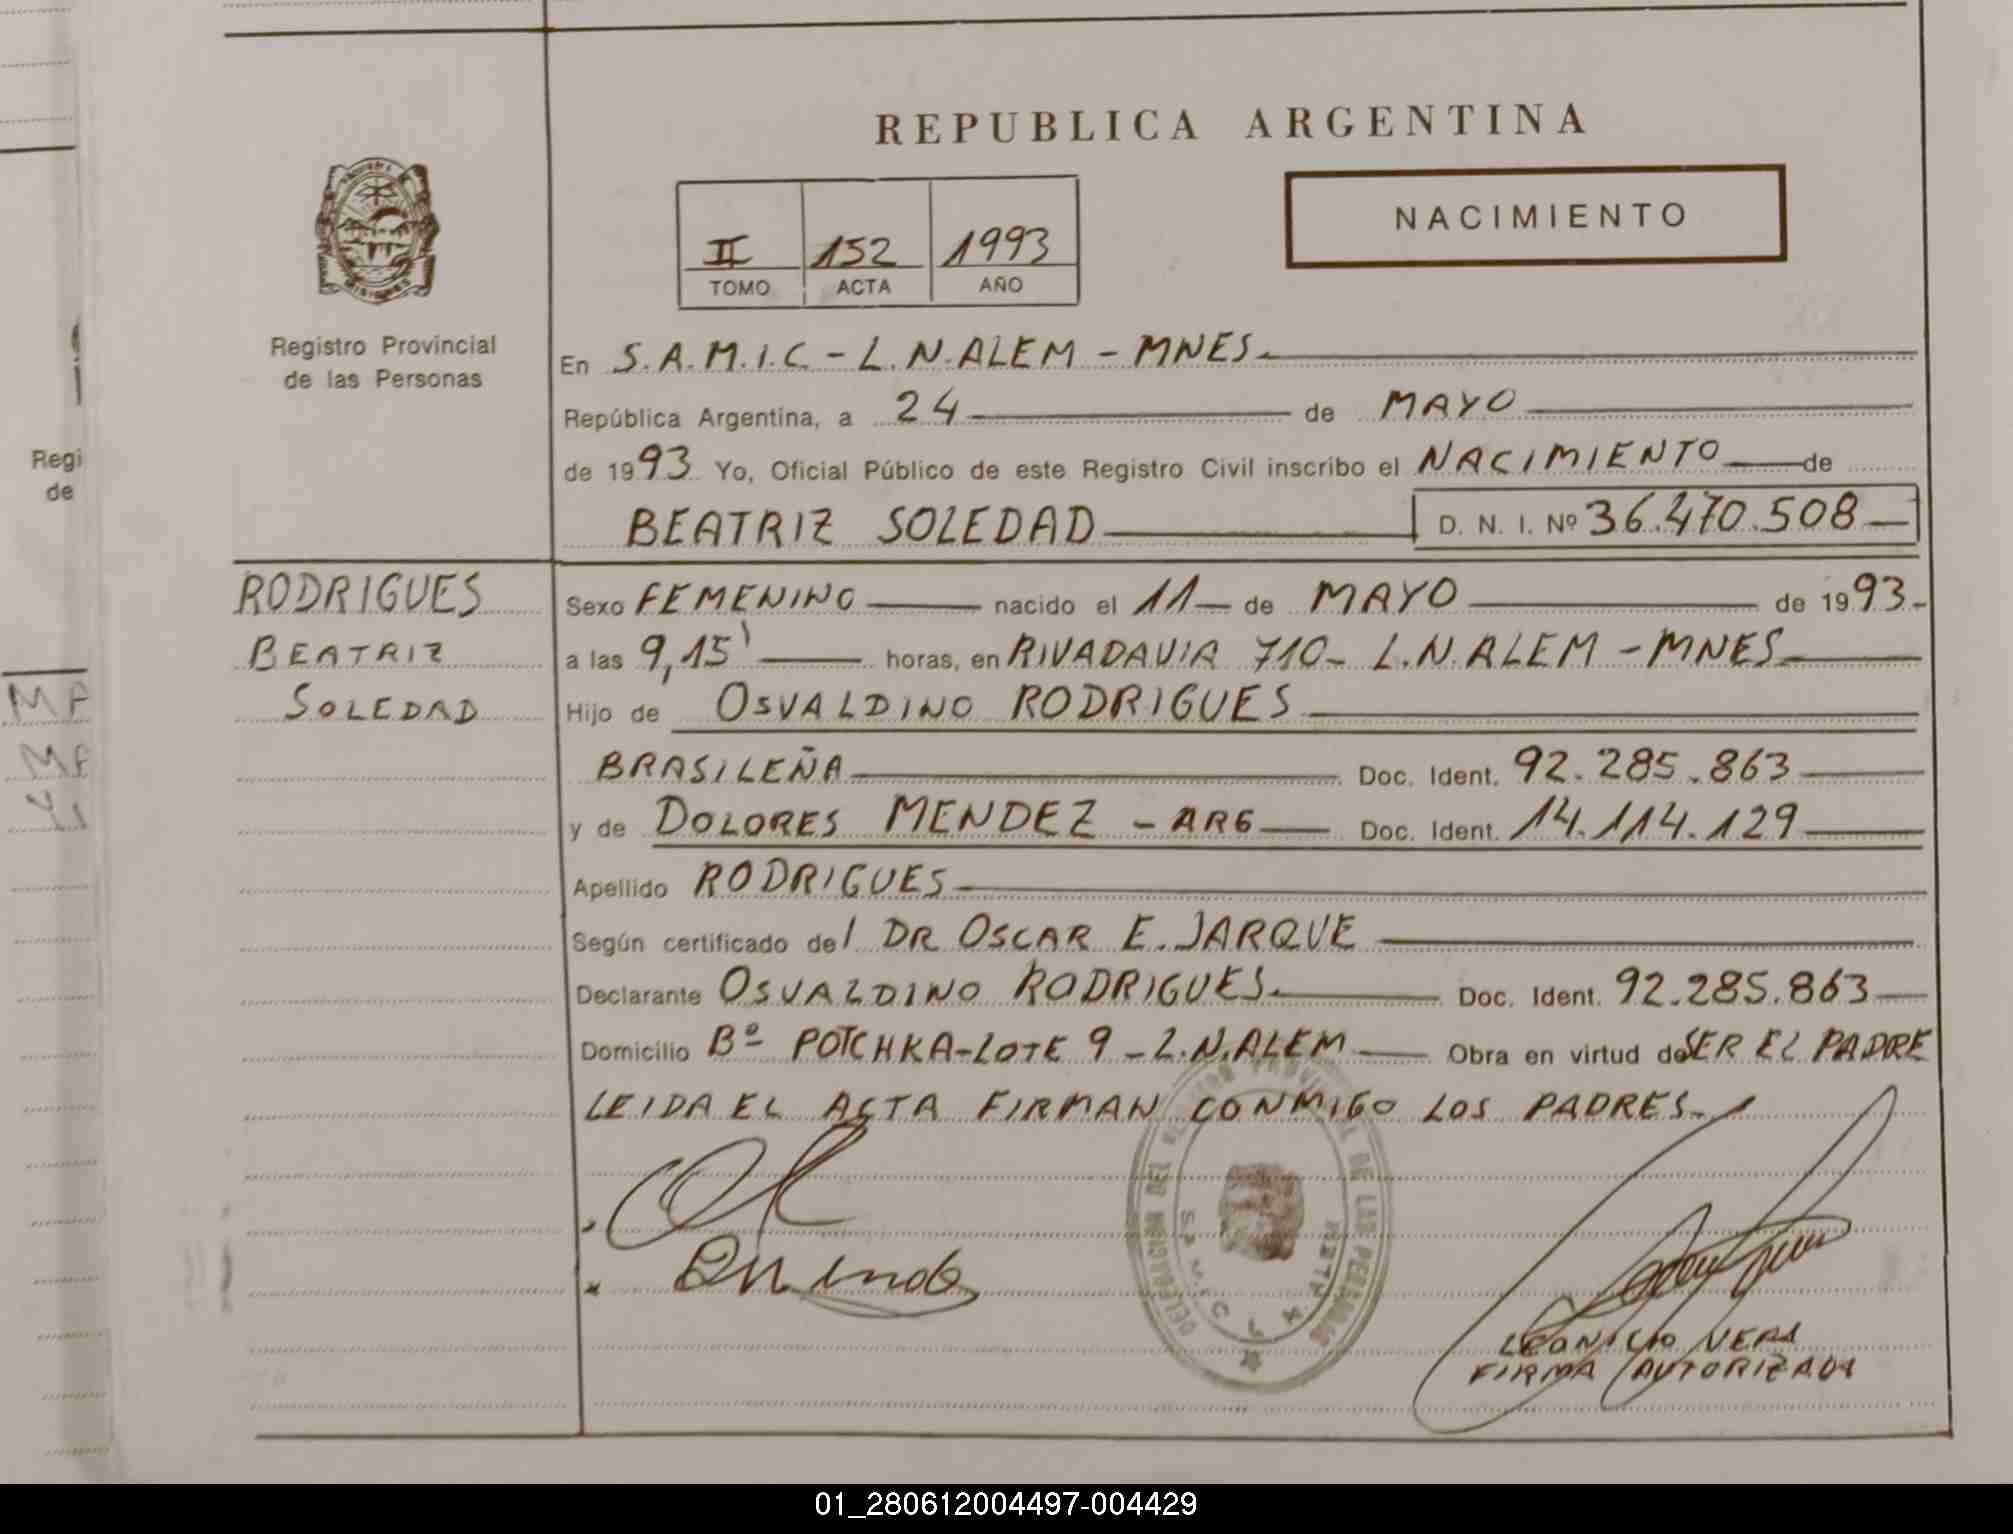 REPUBLICA ARGENTINA
NACIMIENTO
II 152 1993
TOMO ACTA AÑO
Registro Provincial
de las Personas
En S.A.M.I.C. - L.N.ALEM - MNES.
República Argentina, a 24 de MAYO
de 1993 Yo, Oficial Público de este Registro Civil inscribo el NACIMIENTO de
BEATRIZ SOLEDAD D. N. I. Nº 36.470.508
RODRIGUES
BEATRIZ
SOLEDAD
Sexo FEMENINO nacido el 11 de MAYO de 1993-
a las 9,15' horas, en RIVADAVIA 710- L.N.ALEM - MNES
Hijo de OSVALDINO RODRIGUES
BRASILEÑA Doc. Ident. 92.285.863
y de DOLORES MENDEZ - ARG Doc. Ident. 14.114.129
Apellido RODRIGUES
Según certificado del DR OSCAR E. JARQUE
Declarante OSVALDINO RODRIGUES Doc. Ident. 92.285.863
Domicilio Bº POTCHKA-LOTE 9 - L.N.ALEM Obra en virtud de SER EL PADRE
LEIDA EL ACTA FIRMAN CONMIGO LOS PADRES.-
LEONICIO VERA
FIRMA AUTORIZADA
Regi
de
01_280612004497-004429